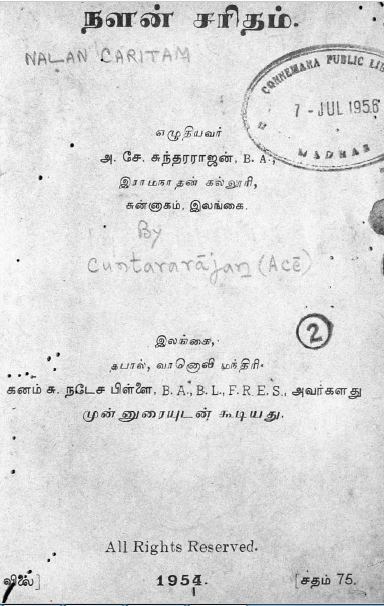 நளன் சரிதம்.
NALAN CARITAM
CONNEMARA PUBLIC LIB
7 - JUL 1956
MADRAS
எழுதியவர்
அ. சே. சுந்தரராஜன், B. A.,
இராமநாதன் கல்லூரி,
சுன்னாகம், இலங்கை.
By
Cuntararājan (Acē)
2
இலங்கை,
தபால், வானொலி மந்திரி.
கனம் சு. நடேச பிள்ளை, B. A., B. L., F. R. E. S., அவர்களது
முன்னுரையுடன் கூடியது.
All Rights Reserved.
விலை] 1954. [சதம் 75.